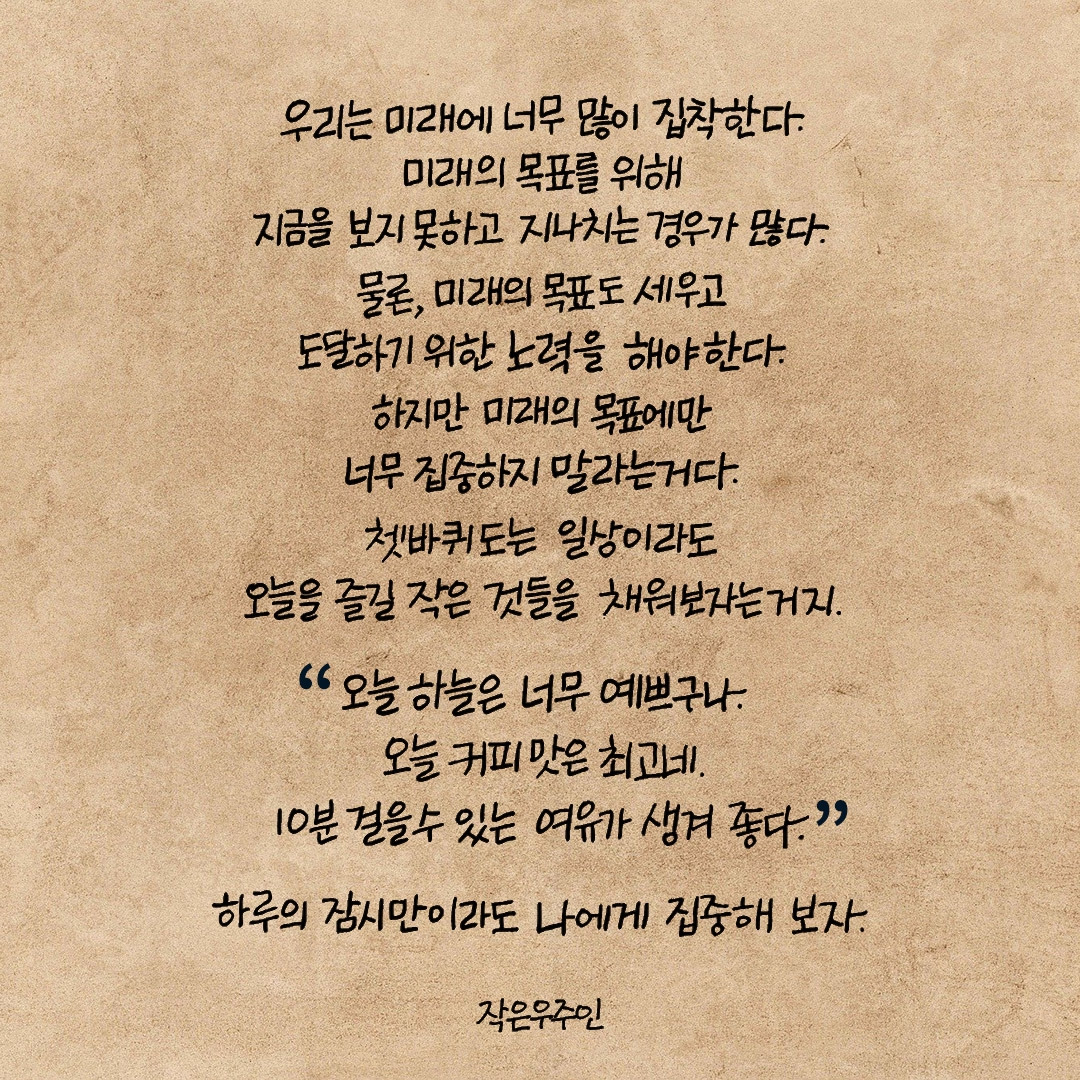 우리는 미래에 너무 많이 집착한다.
미래의 목표를 위해
지금을 보지 못하고 지나치는 경우가 많다.
물론, 미래의 목표도 세우고
도달하기 위한 노력을 해야한다.
하지만 미래의 목표에만
너무 집중하지 말라는거다.
쳇바퀴도는 일상이라도
오늘을 즐길 작은 것들을 채워보자는거지.
“오늘 하늘은 너무 예쁘구나.
오늘 커피 맛은 최고네.
10분 걸을수 있는 여유가 생겨 좋다.”
하루의 잠시만이라도 나에게 집중해 보자.
작은우주인